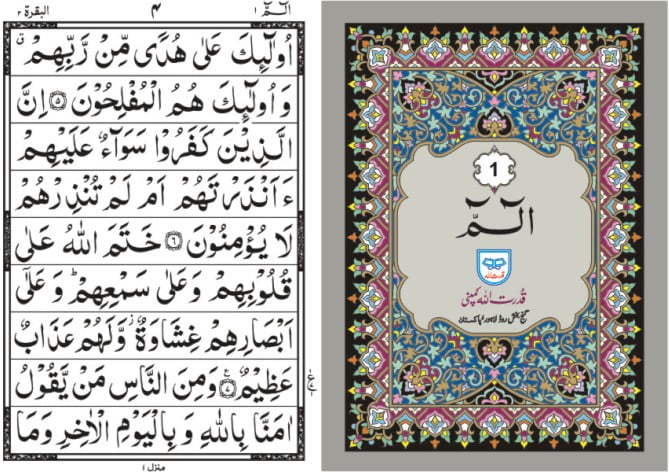 الٓمّٓ ۱
۴
البقرة ۲
اُولٰٓئِكَ عَلٰى هُدًى مِّنْ رَّبِّهِمْ ۙ
وَ اُولٰٓئِكَ هُمُ الْمُفْلِحُوْنَ ۝۵ اِنَّ
الَّذِيْنَ كَفَرُوْا سَوَآءٌ عَلَيْهِمْ
ءَاَنْذَرْتَهُمْ اَمْ لَمْ تُنْذِرْهُمْ
لَا يُؤْمِنُوْنَ ۝۶ خَتَمَ اللّٰهُ عَلٰى
قُلُوْبِهِمْ وَعَلٰى سَمْعِهِمْ ؕ وَ عَلٰٓى
اَبْصَارِهِمْ غِشَاوَةٌ ؗ وَّلَهُمْ عَذَابٌ
عَظِيْمٌ ۝۷ وَمِنَ النَّاسِ مَنْ يَّقُوْلُ
اٰمَنَّا بِاللّٰهِ وَ بِالْيَوْمِ الْاٰخِرِ وَمَا
منزل ۱
1
الٓمّٓ
قدرت اللہ
قُدرت اللہ کمپنی
گنج بخش روڈ لاہور پاکستان